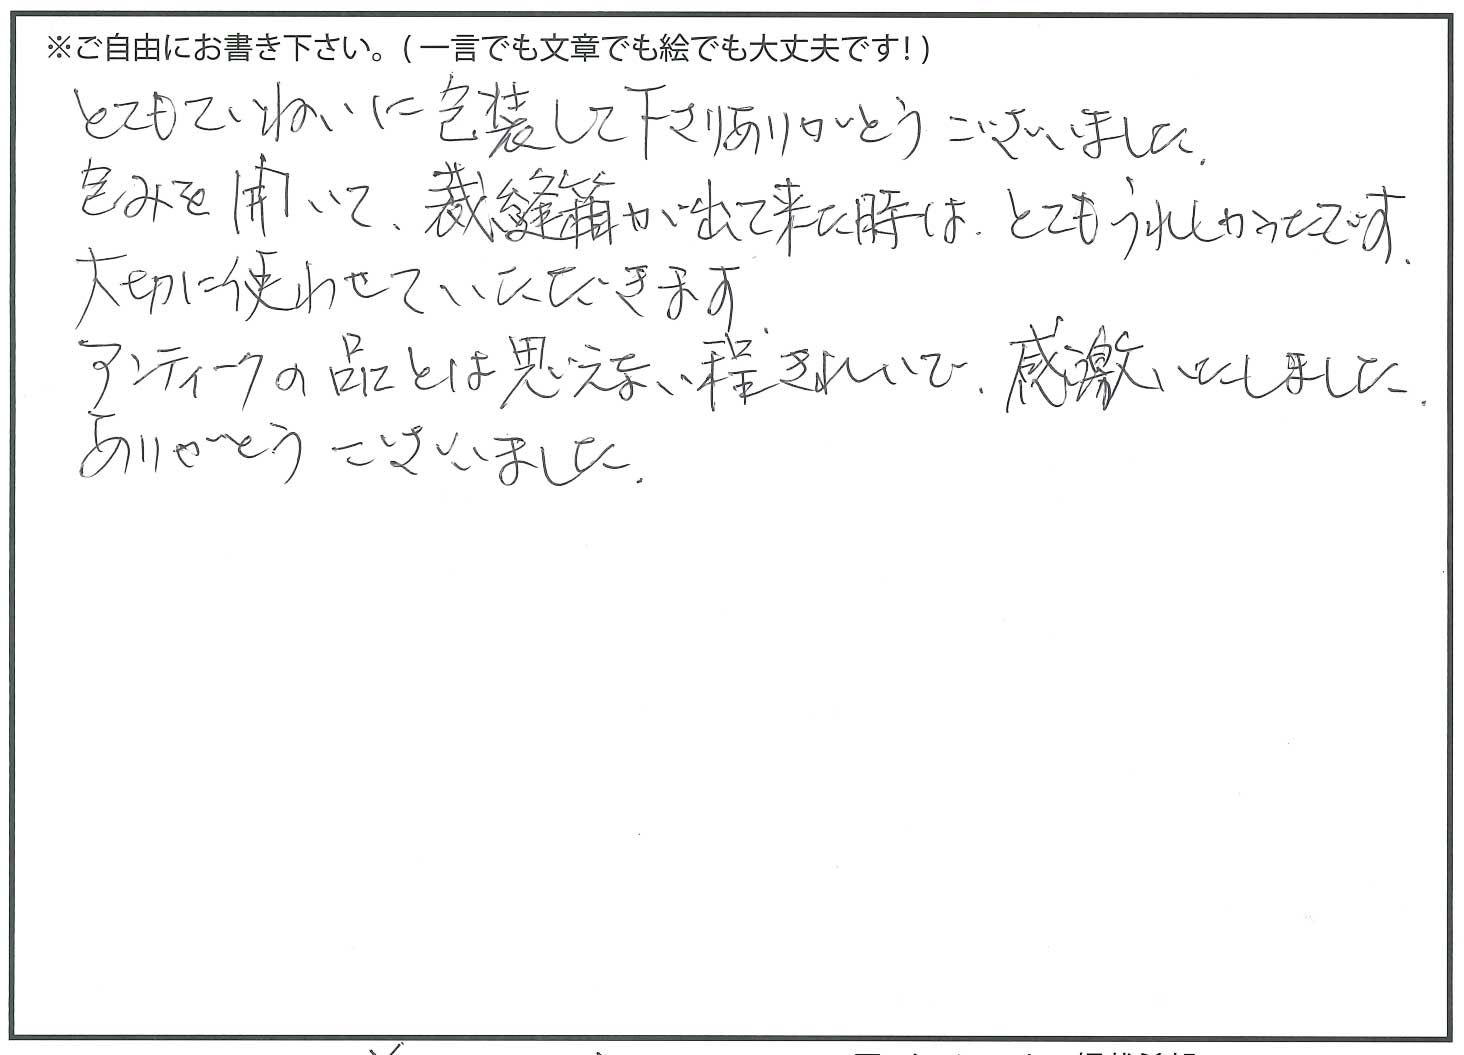 ※ご自由にお書き下さい。(一言でも文章でも絵でも大丈夫です!)
とてもていねいに包装して下さりありがとうございました.
包みを開いて、裁縫箱が出て来た時は、とてもうれしかったです.
大切に使わせていただきます.
アンティークの品とは思えない程きれいで、感激いたしました.
ありがとうございました.